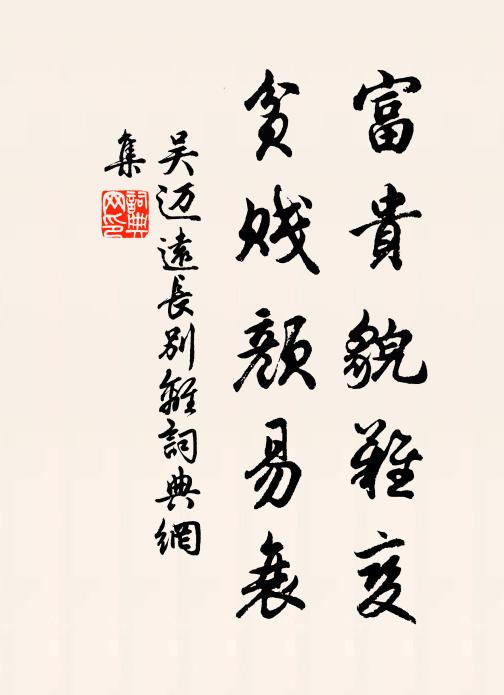 富貴貌難变
貧賤顏易衰
吴迈遠長别離詞典網
集
詞典网印